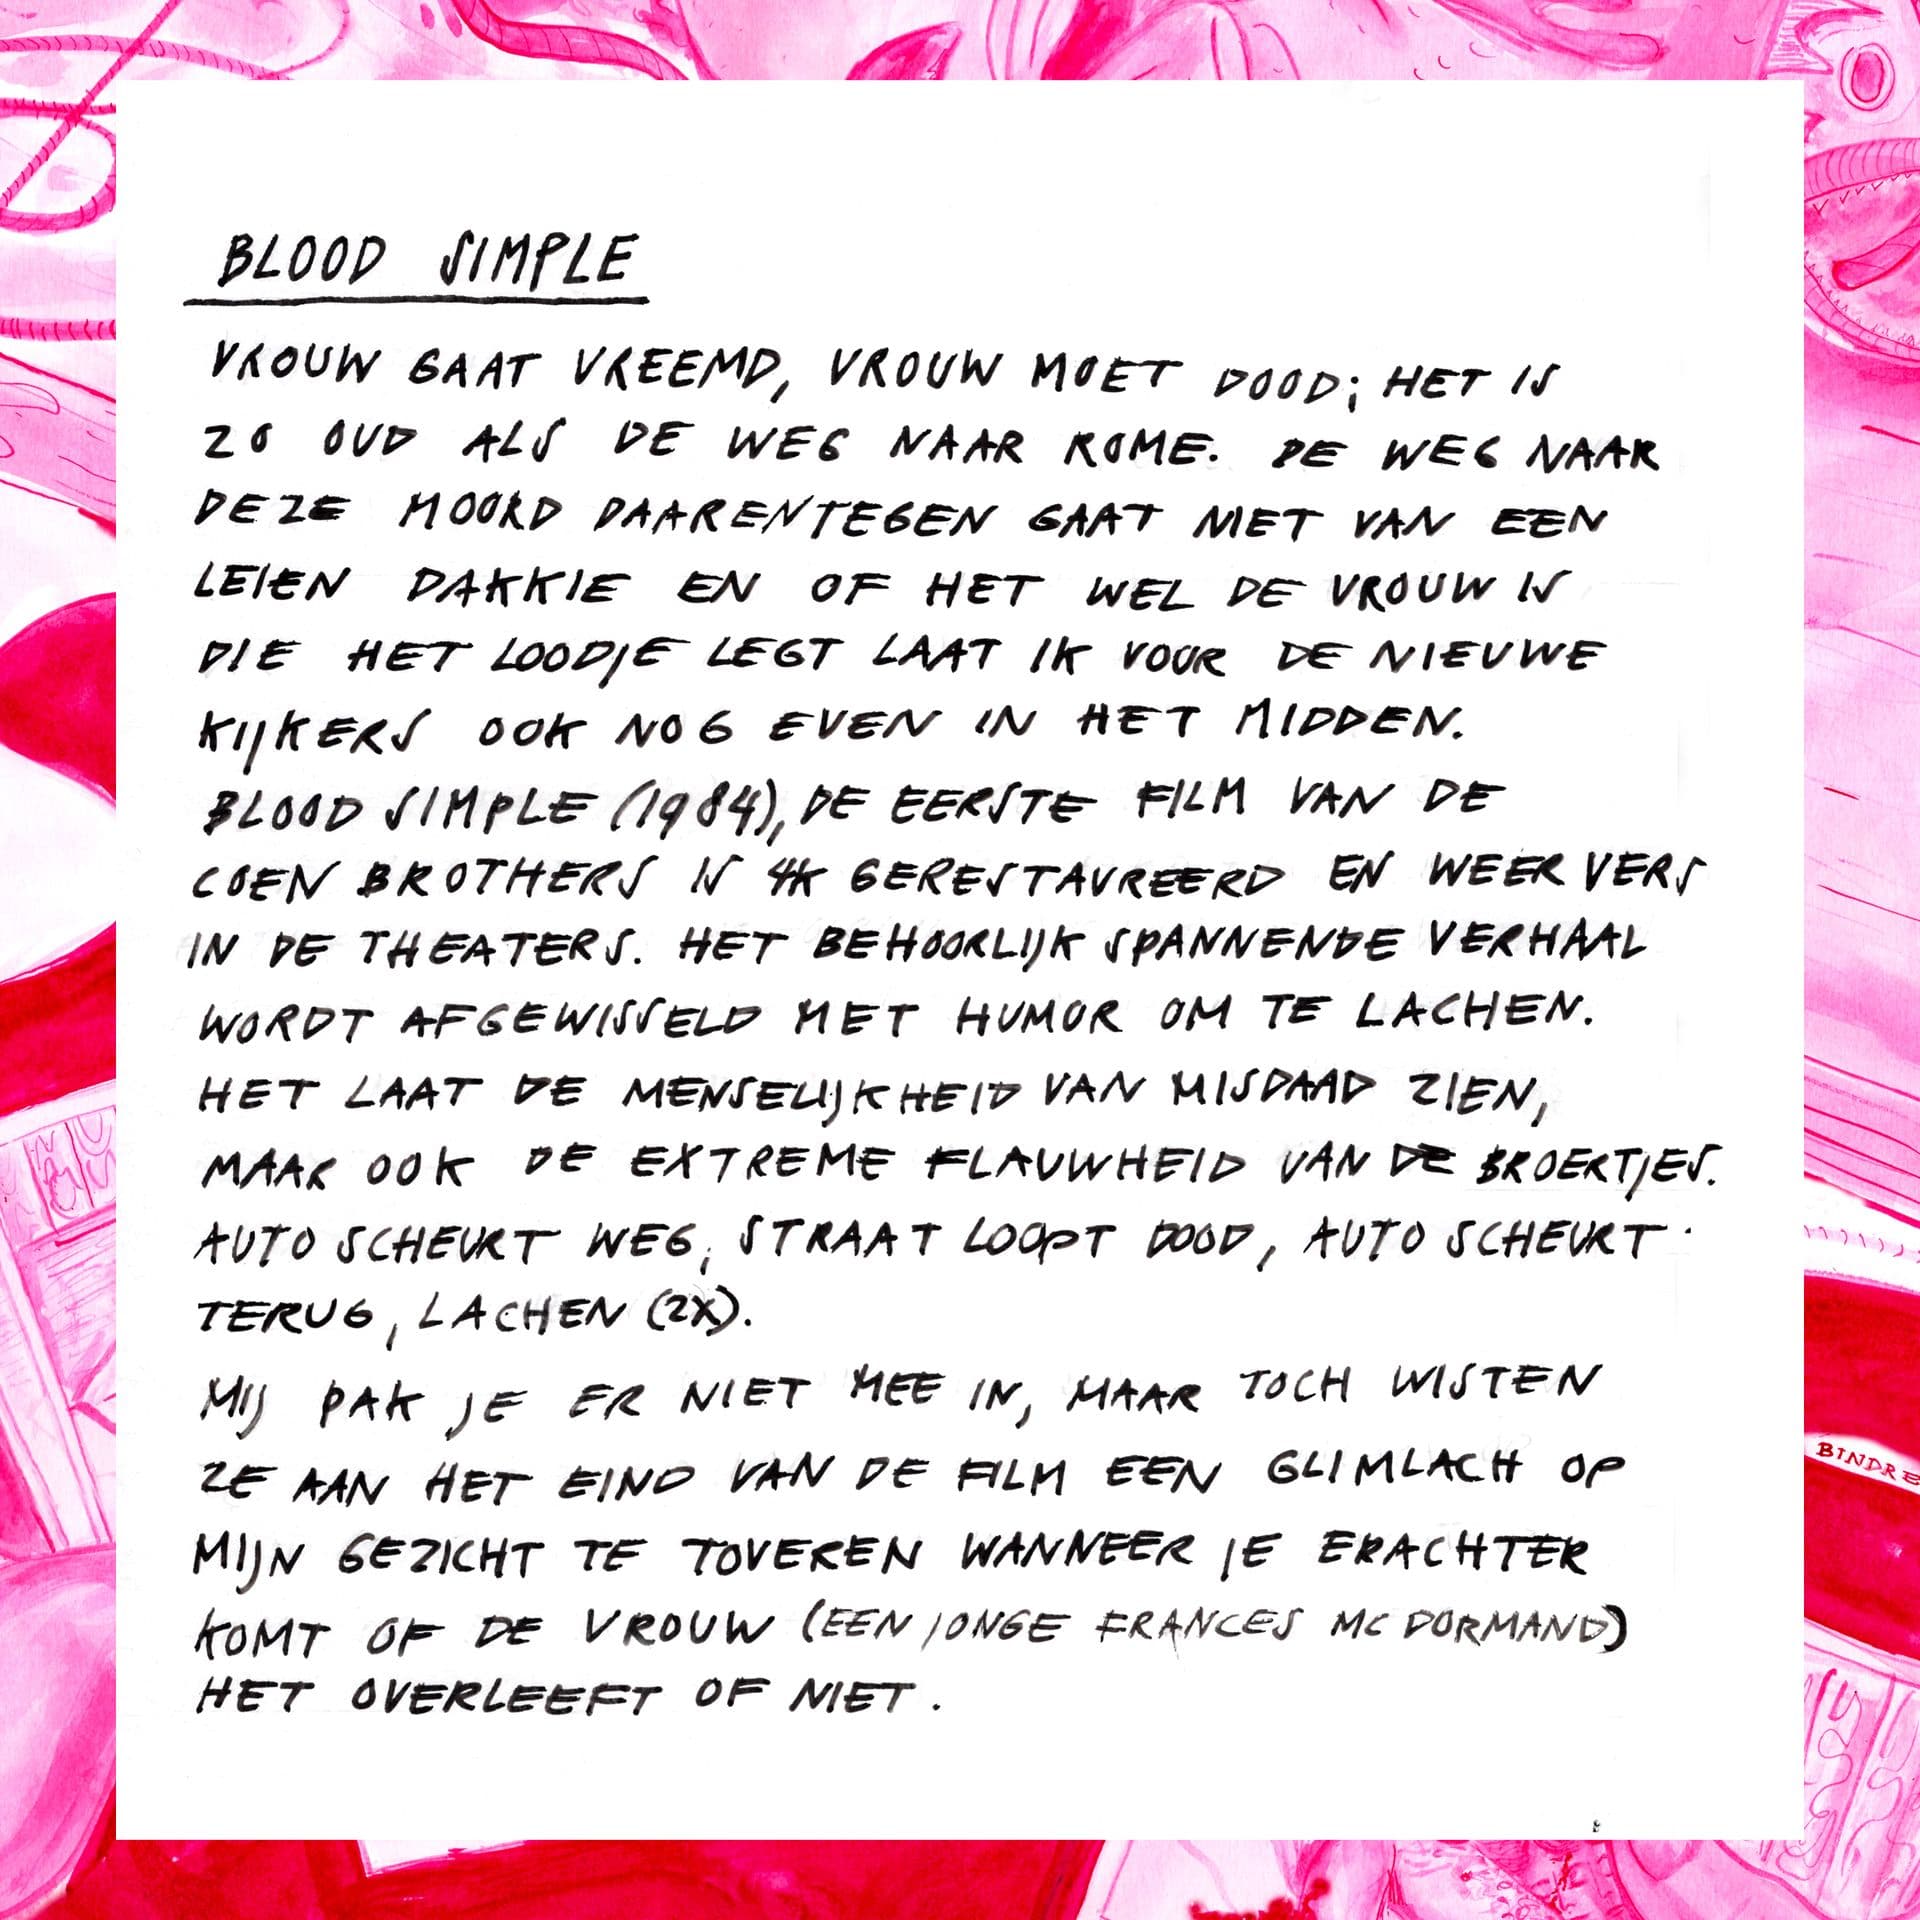 BLOOD SIMPLE
VROUW GAAT VREEMD, VROUW MOET DOOD; HET IS
ZO OUD ALS DE WEG NAAR ROME. DE WEG NAAR
DEZE MOORD DAARENTEGEN GAAT NIET VAN EEN
LEIEN DAKKIE EN OF HET WEL DE VROUW IS
DIE HET LOODJE LEGT LAAT IK VOOR DE NIEUWE
KIJKERS OOK NOG EVEN IN HET MIDDEN.
BLOOD SIMPLE (1984), DE EERSTE FILM VAN DE
COEN BROTHERS IS 4K GERESTAUREERD EN WEER VERS
IN DE THEATERS. HET BEHOORLIJK SPANNENDE VERHAAL
WORDT AFGEWISSELD MET HUMOR OM TE LACHEN.
HET LAAT DE MENSELIJKHEID VAN MISDAAD ZIEN,
MAAR OOK DE EXTREME FLAUWHEID VAN DE BROERTJES.
AUTO SCHEURT WEG, STRAAT LOOPT DOOD, AUTO SCHEURT
TERUG, LACHEN (2X).
MIJ PAK JE ER NIET MEE IN, MAAR TOCH WISTEN
ZE AAN HET EIND VAN DE FILM EEN GLIMLACH OP
MIJN GEZICHT TE TOVEREN WANNEER JE ERACHTER
KOMT OF DE VROUW (EEN JONGE FRANCES MC DORMAND)
HET OVERLEEFT OF NIET.
BINDRE